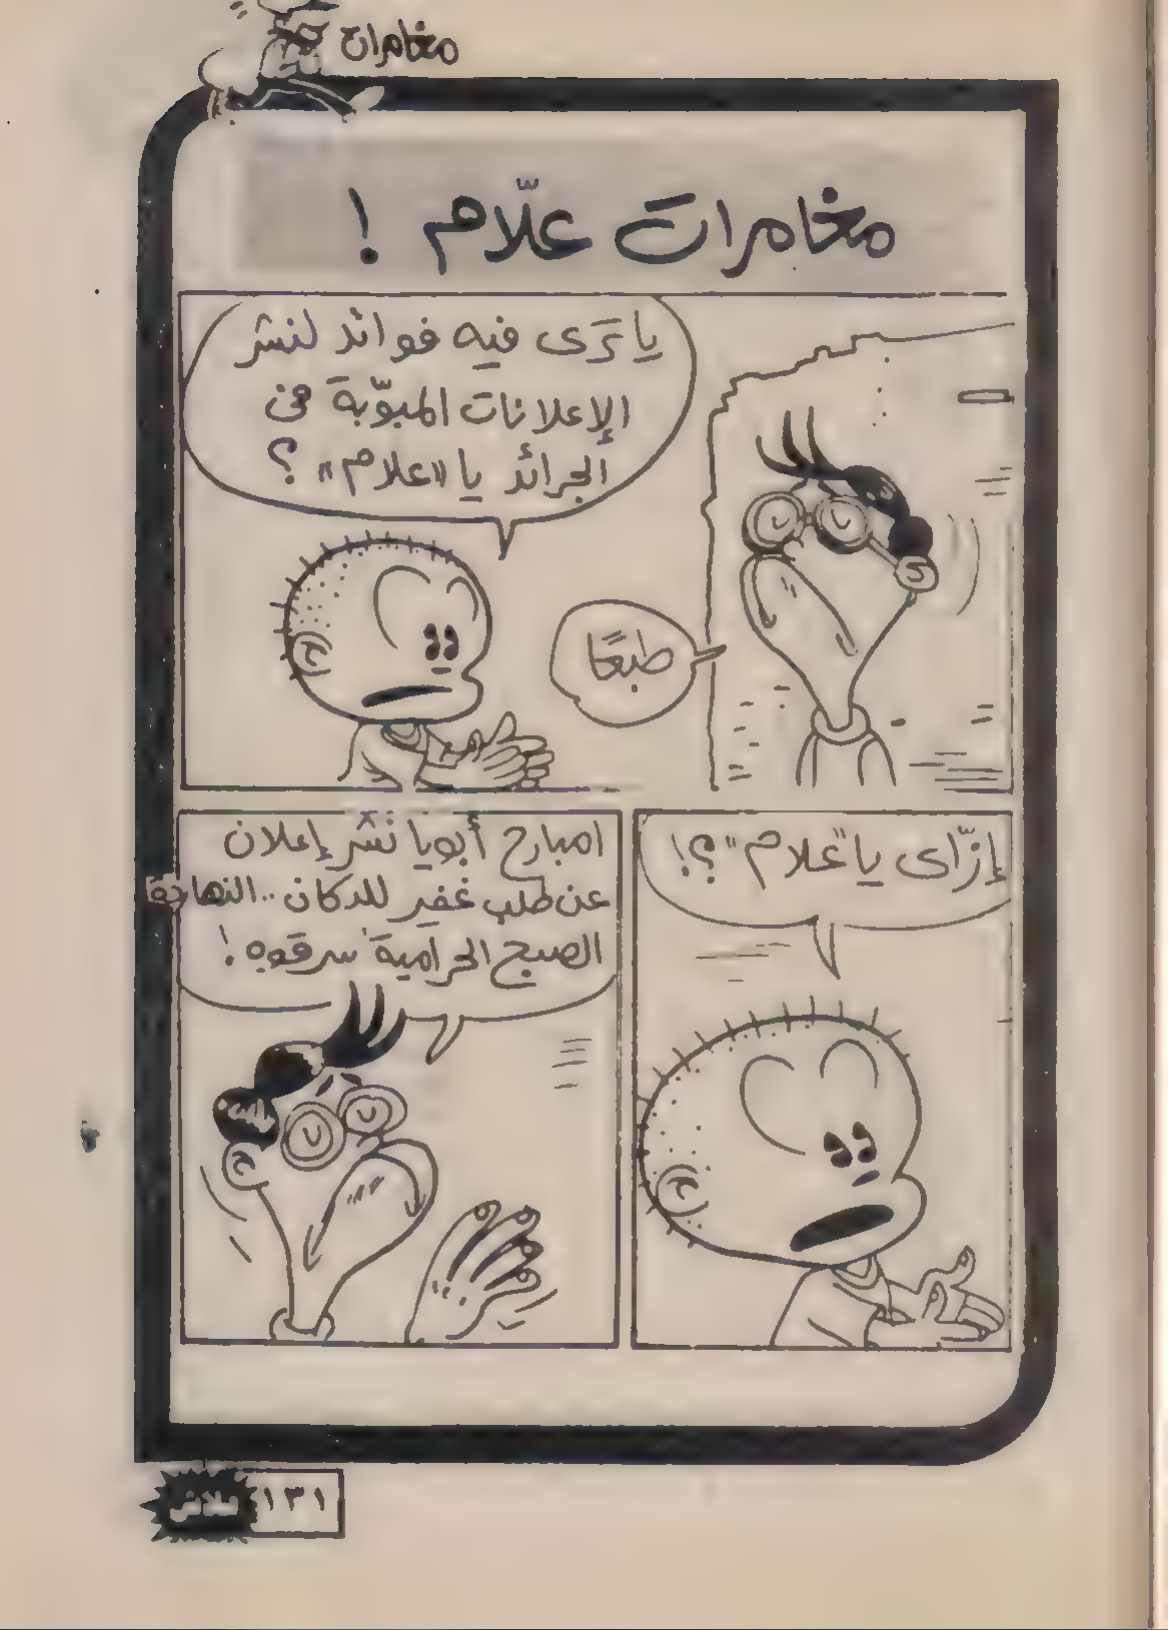 مغامرات
مغامرات علّام !
يا تَرى فيه فوائد لنشر
الإعلانات المبوّبة فى
الجرائد يا «علام» ؟
طبعًا
إزّاى يا "علام" ؟!
امبارح أبويا نشر إعلان
عن طلب غفير للدكان .. النهاردة
الصبح الحرامية سرقوه !
١٣١
فلاش